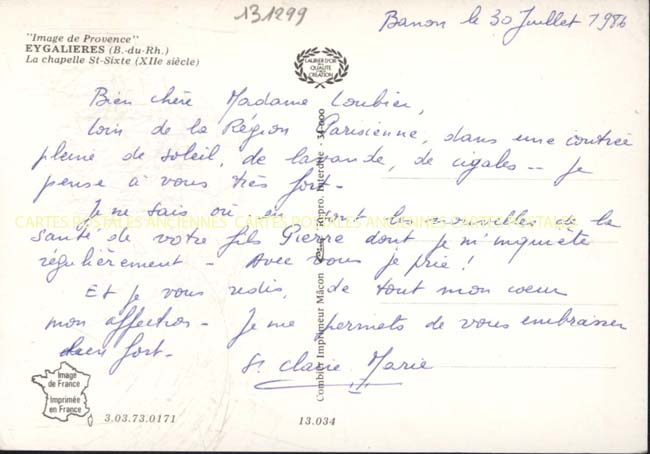 131299
Banon le 30 Juillet 1986
"Image de Provence"
EYGALIERES (B.-du-Rh.)
La chapelle St-Sixte (XIIe siècle)
LAURIER D'OR
DE LA
QUALITÉ
CRÉATION
Bien chère Madame Loubier,
Loin de la Région Parisienne, dans une contrée
pleine de soleil, de lavande, de cigales -- je
pense à vous très fort -
Je ne sais où en sont les nouvelles de la
santé de votre fils Pierre dont je m'inquiète
régulièrement - Avec vous je prie !
Et je vous redis, de tout mon coeur
mon affection - Je me permets de vous embrasser
bien fort -
Sr Claire Marie
CARTES POSTALES ANCIENNES CARTES POSTALES ANCIENNES CARTES POSTALES
Combier Imprimeur Mâcon
repro. interdite - 71000
Image
de France
Imprimée
en France
3.03.73.0171
13.034